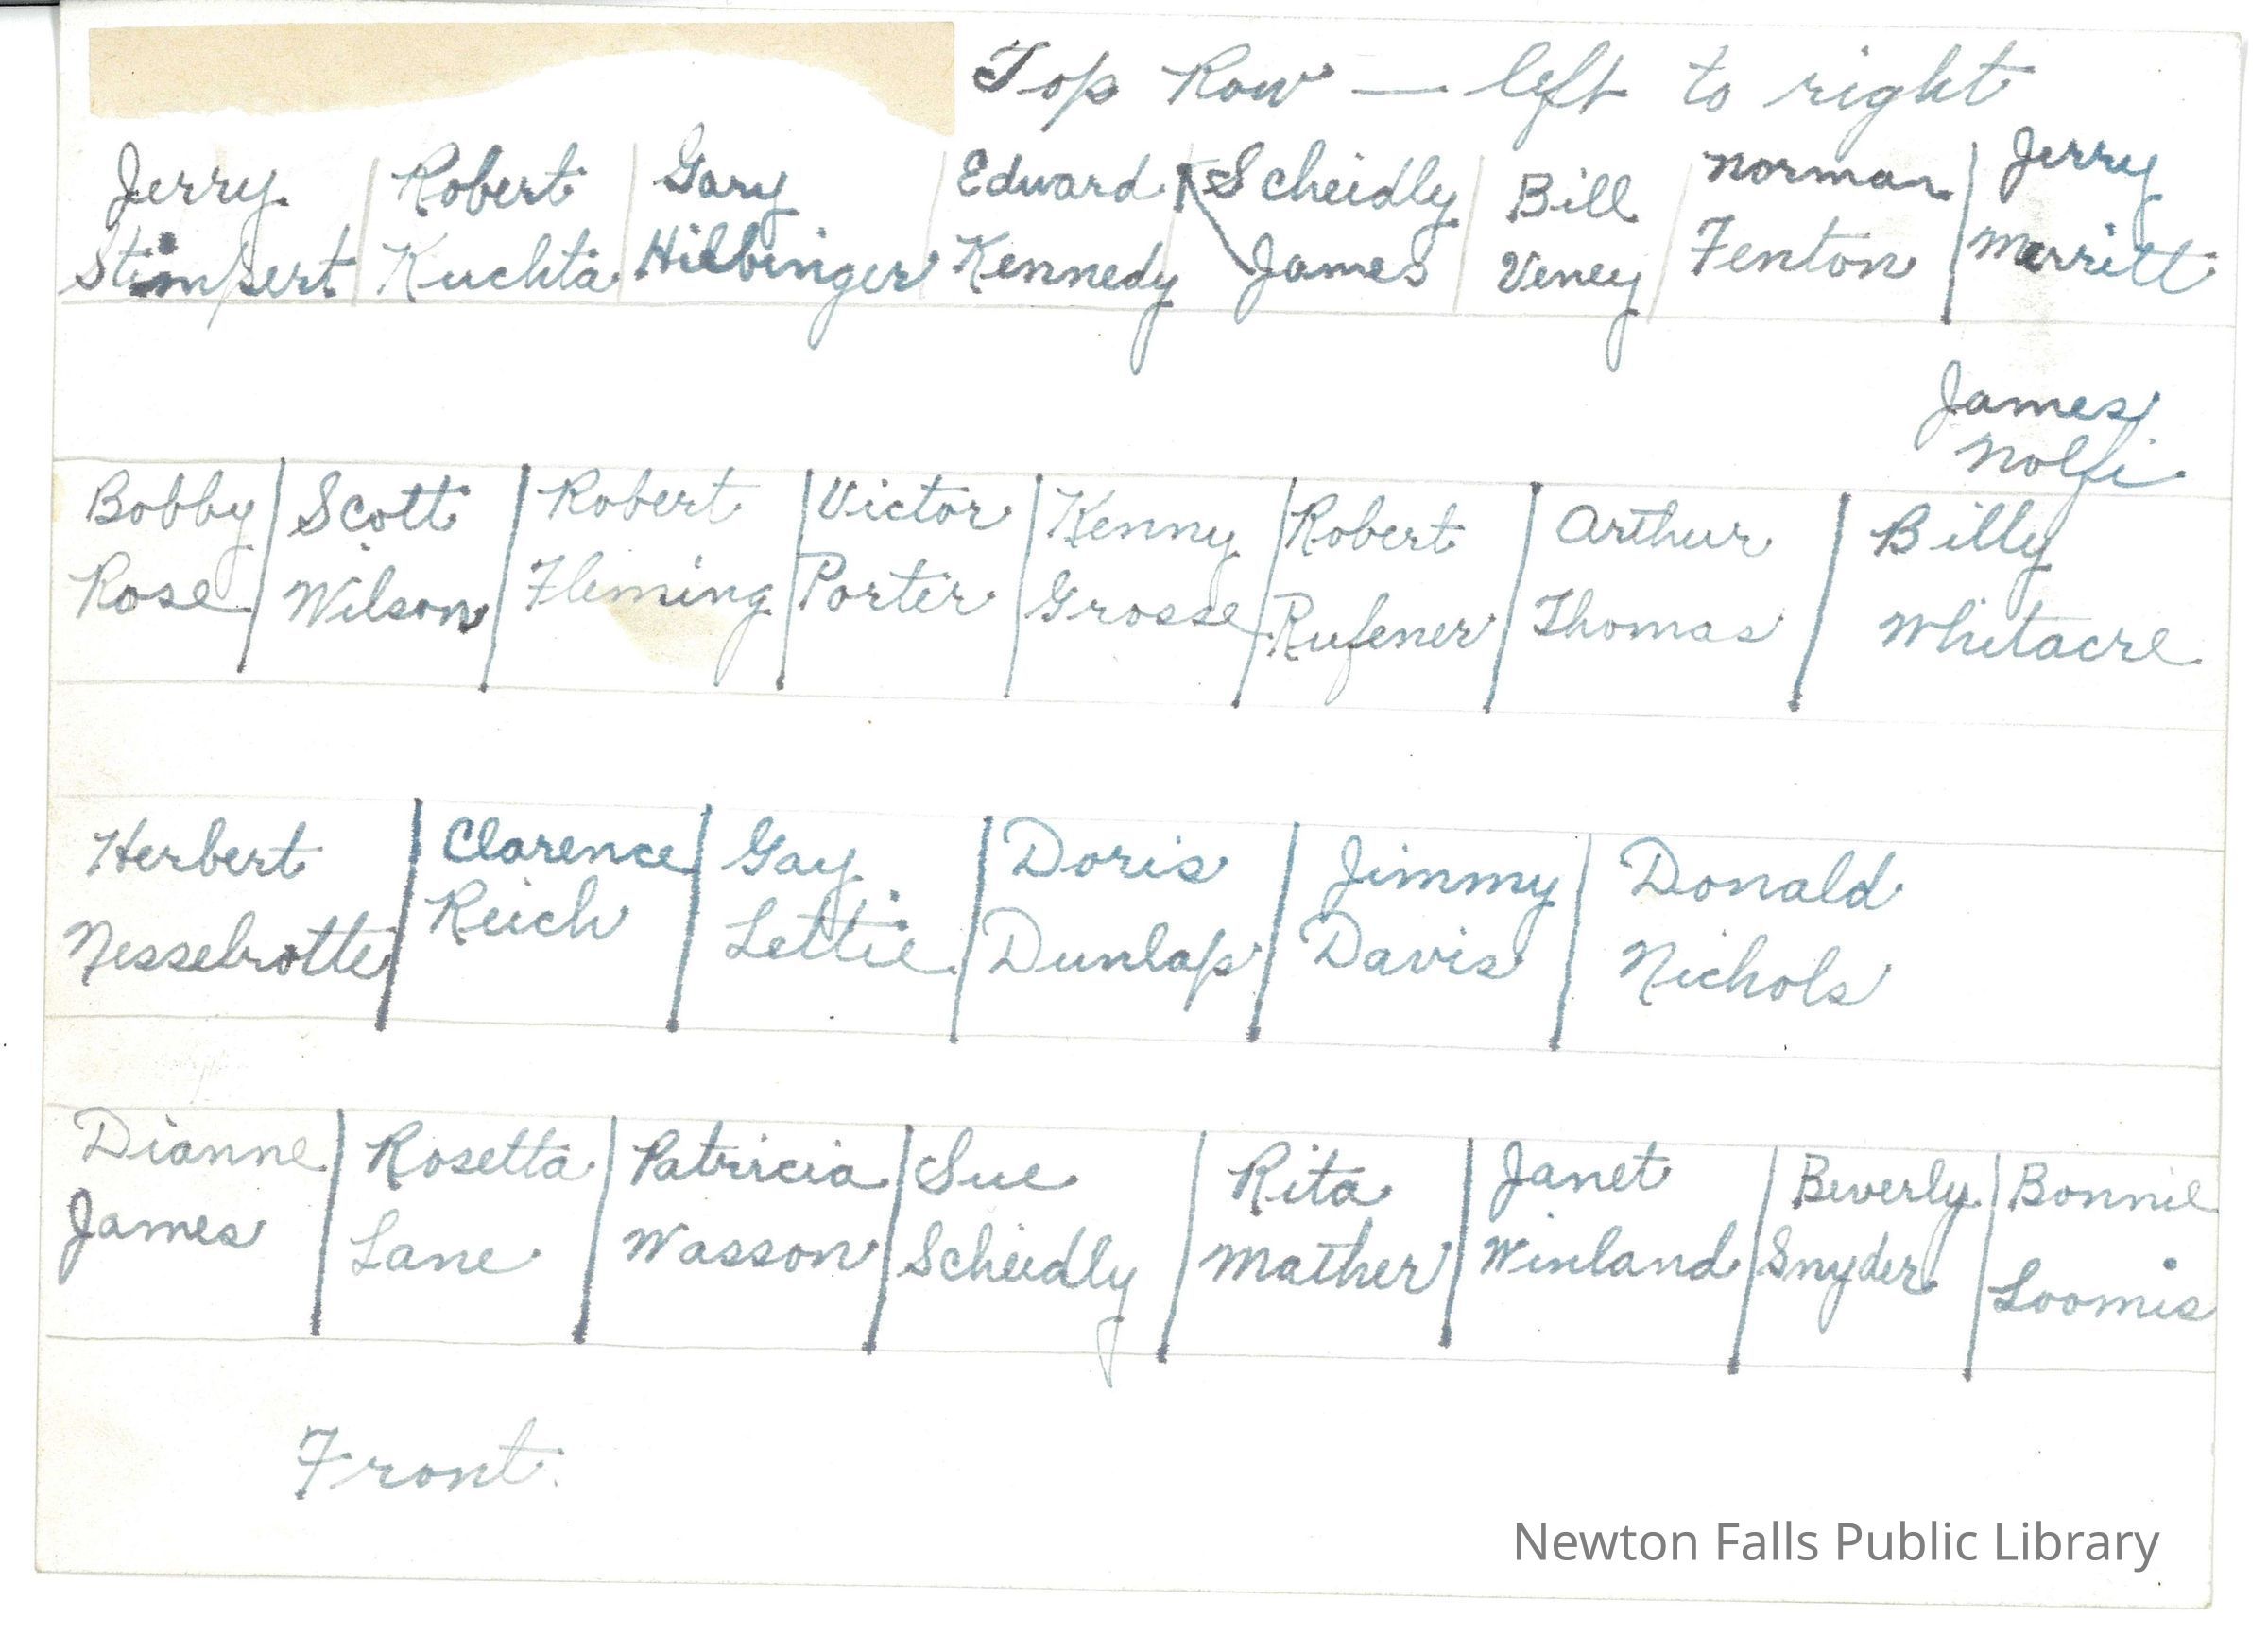 Top Row — left to right
Jerry Robert Gary Edward Scheidly Bill Norman Jerry
Stimpert Kuchta Hilbinger Kennedy James Veney Fenton Merritt
James
Nolfi
Bobby Scott Robert Victor Kenny Robert Arthur Billy
Rose Wilson Fleming Porter Grosse Rufener Thomas Whitacre
Herbert Clarence Gay Doris Jimmy Donald
Nesselrotte Reich Lettie Dunlap Davis Nichols
Dianne Rosetta Patricia Sue Rita Janet Beverly Bonnie
James Lane Wasson Scheidly Mather Winland Snyder Loomis
Front
Newton Falls Public Library